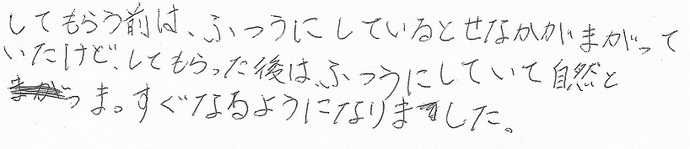 してもらう前は、ふつうにしているとせなかがまがって
いたけど、してもらった後は、ふつうにしていて自然と
まっすぐなるようになりました。